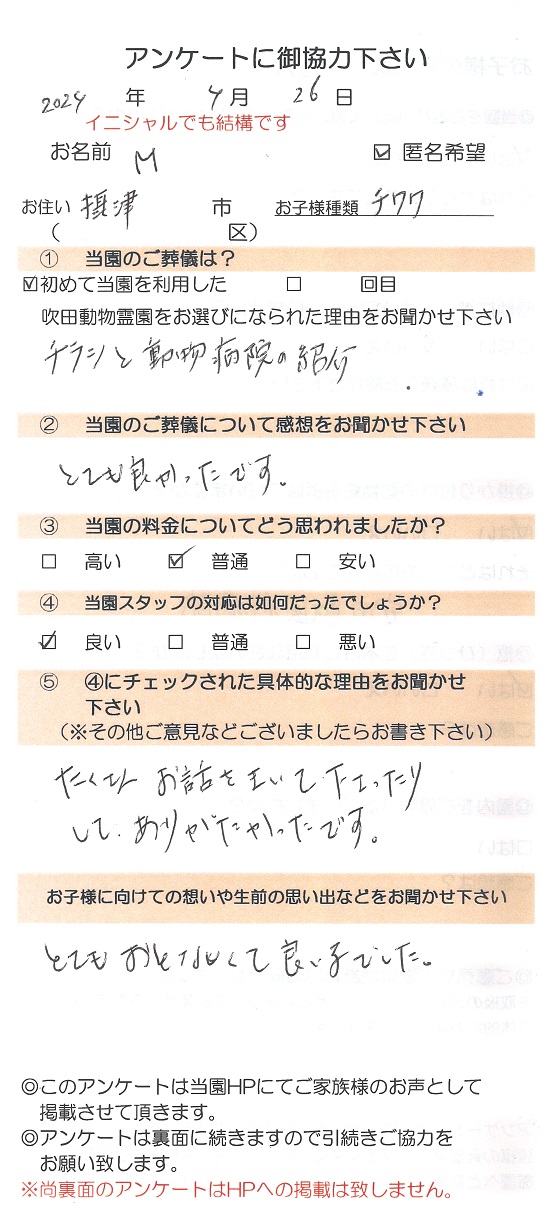 アンケートに御協力下さい
2024 年 4月 26日
イニシャルでも結構です
お名前 M ☑ 匿名希望
お住い 摂津 市 お子様種類 チワワ
( 区)
① 当園のご葬儀は？
☑初めて当園を利用した □ 回目
吹田動物霊園をお選びになられた理由をお聞かせ下さい
チラシと動物病院の紹介
② 当園のご葬儀について感想をお聞かせ下さい
とても良かったです。
③ 当園の料金についてどう思われましたか？
□ 高い ☑ 普通 □ 安い
④ 当園スタッフの対応は如何だったでしょうか？
☑ 良い □ 普通 □ 悪い
⑤ ④にチェックされた具体的な理由をお聞かせ
下さい
（※その他ご意見などございましたらお書き下さい）
たくさん お話を 下さったり
して、ありがたかったです。
お子様に向けての想いや生前の思い出などをお聞かせ下さい
とても おとなしくて 良い子でした。
◎このアンケートは当園HPにてご家族様のお声として
掲載させて頂きます。
◎アンケートは裏面に続きますので引続きご協力を
お願い致します。
※尚裏面のアンケートはHPへの掲載は致しません。